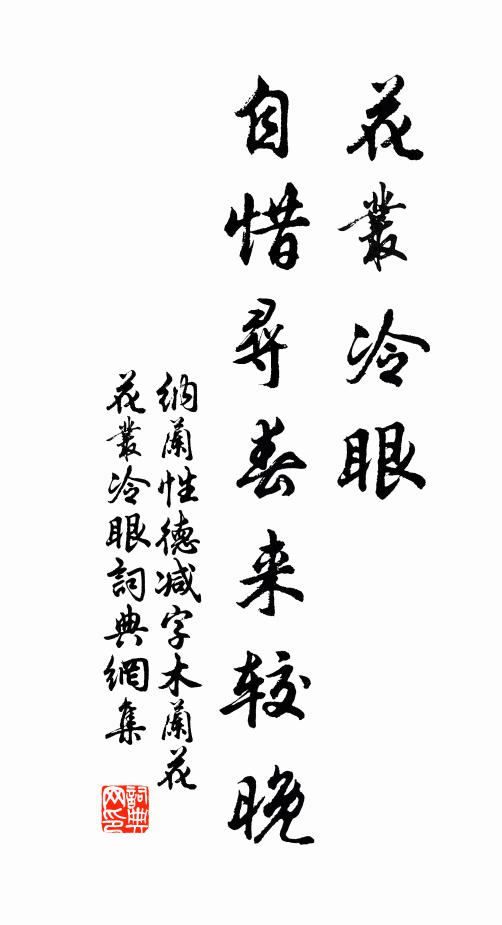 花叢冷眼
自惜尋春来较晚
納蘭性德减字木蘭花
花叢冷眼詞典網集
詞典网印